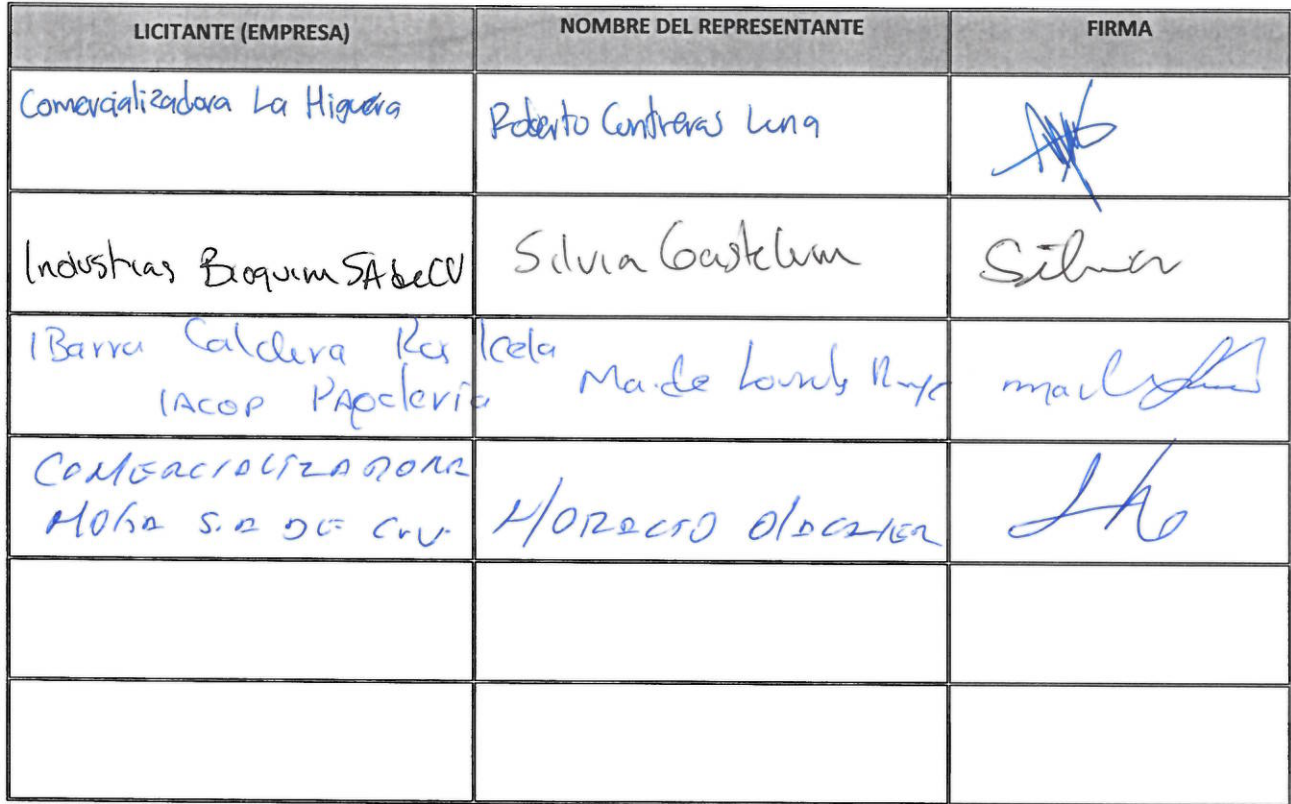 LICITANTE (EMPRESA) NOMBRE DEL REPRESENTANTE FIRMA
Comercializadora La Higuera Roberto Contreras Luna
Industrias Bioquim SA de CV Silvia Gastelum Silvia
IBarra Caldera Icela
IACOP PAPelería Ma. de Lourdes
COMERCIALIZADORA
S.A DE C.V. HORACIO